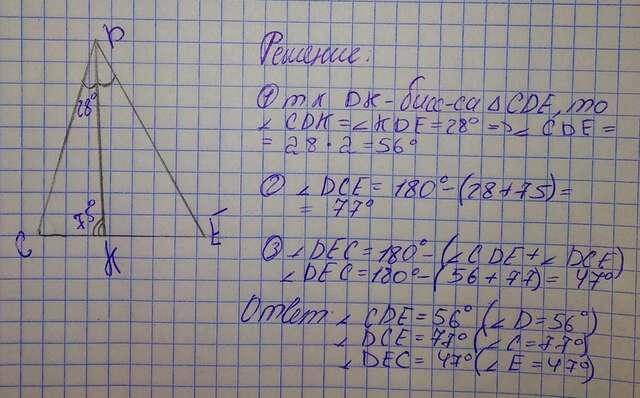 D
28°
75°
C
K
E
Решение:
① т.к DK - бисс-са △ CDE, то
∠ CDK = ∠ KDE = 28° => ∠ CDE =
= 28 · 2 = 56°
② ∠ DCE = 180° - (28 + 75) =
= 77°
③ ∠ DEC = 180° - (∠ CDE + ∠ DCE)
∠ DEC = 180° - (56 + 77) = 47°
Ответ: ∠ CDE = 56° (∠ D = 56°)
∠ DCE = 77° (∠ C = 77°)
∠ DEC = 47° (∠ E = 47°)